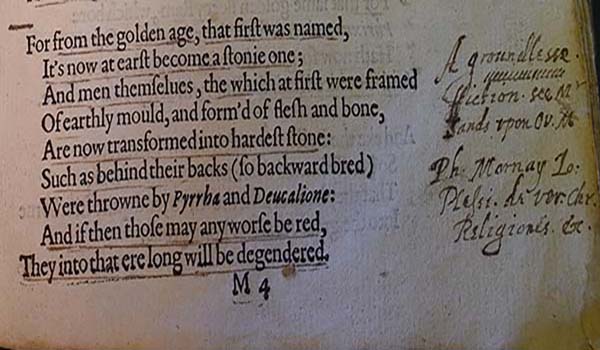 For from the golden age, that firſt was named,
It's now at earſt become a ſtonie one;
And men themſelues, the which at firſt were framed
Of earthly mould, and form'd of fleſh and bone,
Are now transformed into hardeſt ſtone:
Such as behind their backs (ſo backward bred)
Were throwne by Pyrrha and Deucalione:
And if then thoſe may any worſe be red,
They into that ere long will be degendered.
M 4
A groundlesse
fiction. see Mr
Sands vpon Ov. M
Ph. Mornay Io:
Plessi. de ver. Chr.
Religionis. &c.